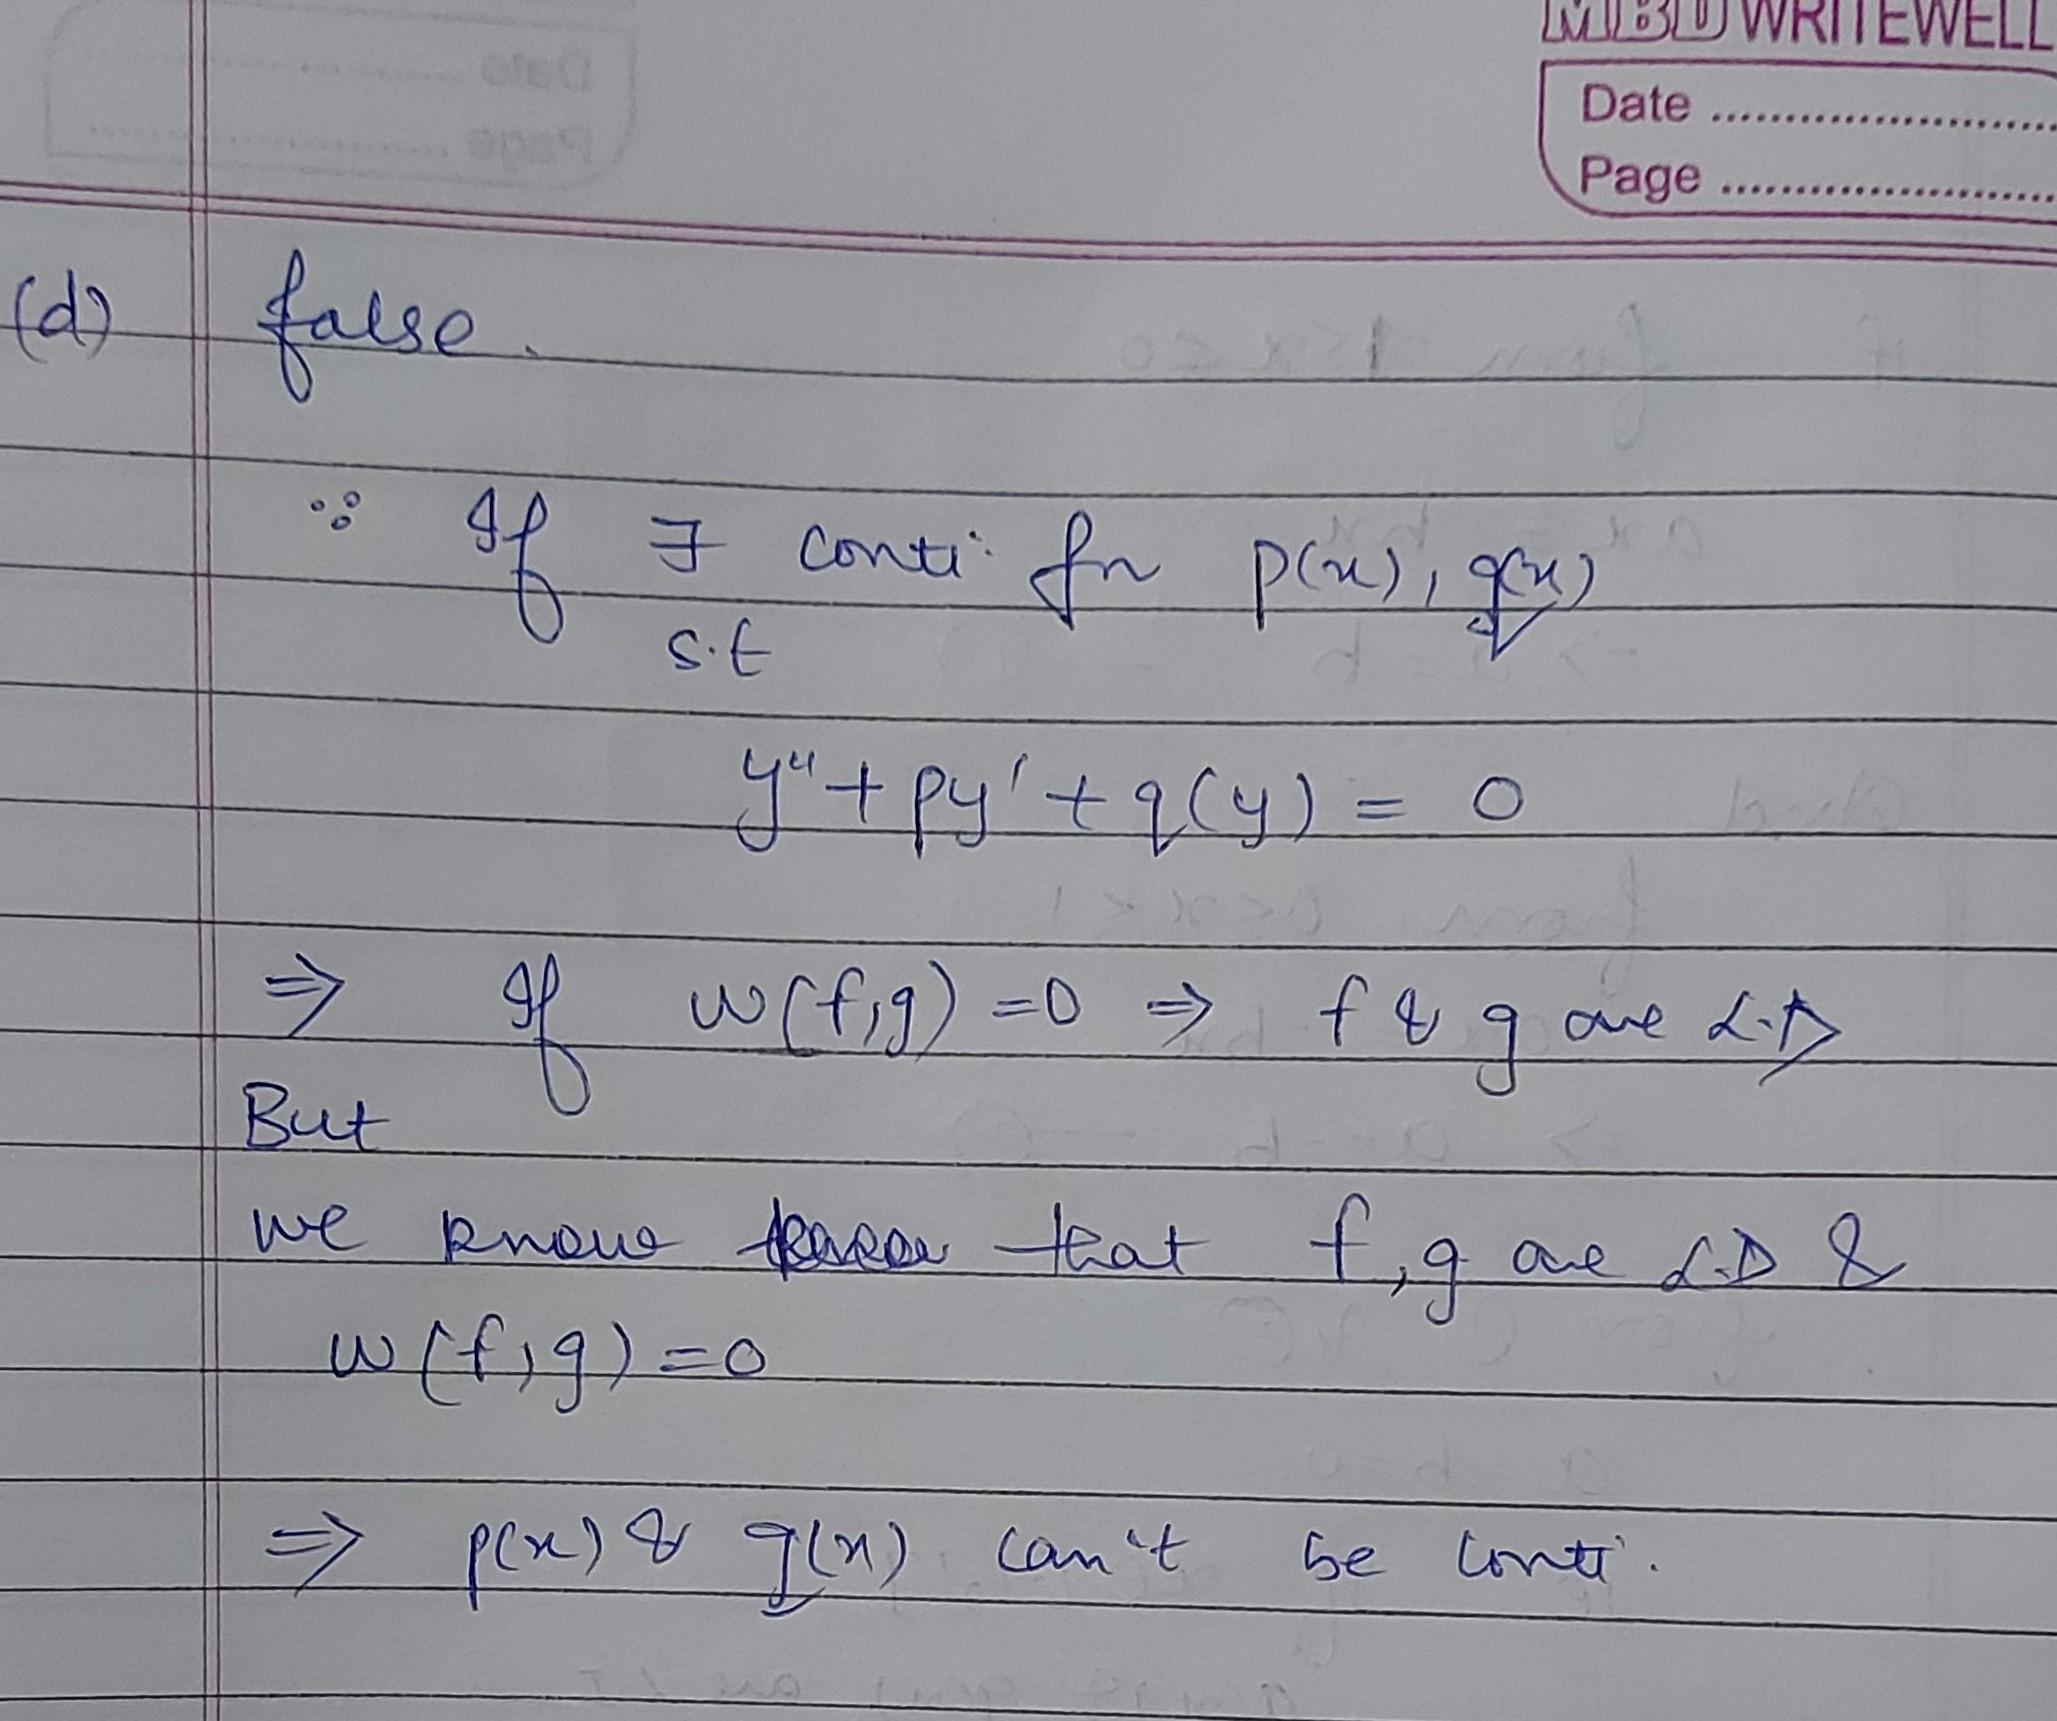 MBD WRITEWELL
Date
Page
(d) false.
∵ If ∃ conti. fn p(x), q(x)
s.t
y'' + py' + q(y) = 0
⇒ If w(f,g) = 0 ⇒ f & g are L.D
But
we know that f,g are L.D &
w(f,g) = 0
⇒ p(x) & q(x) can't be conti.